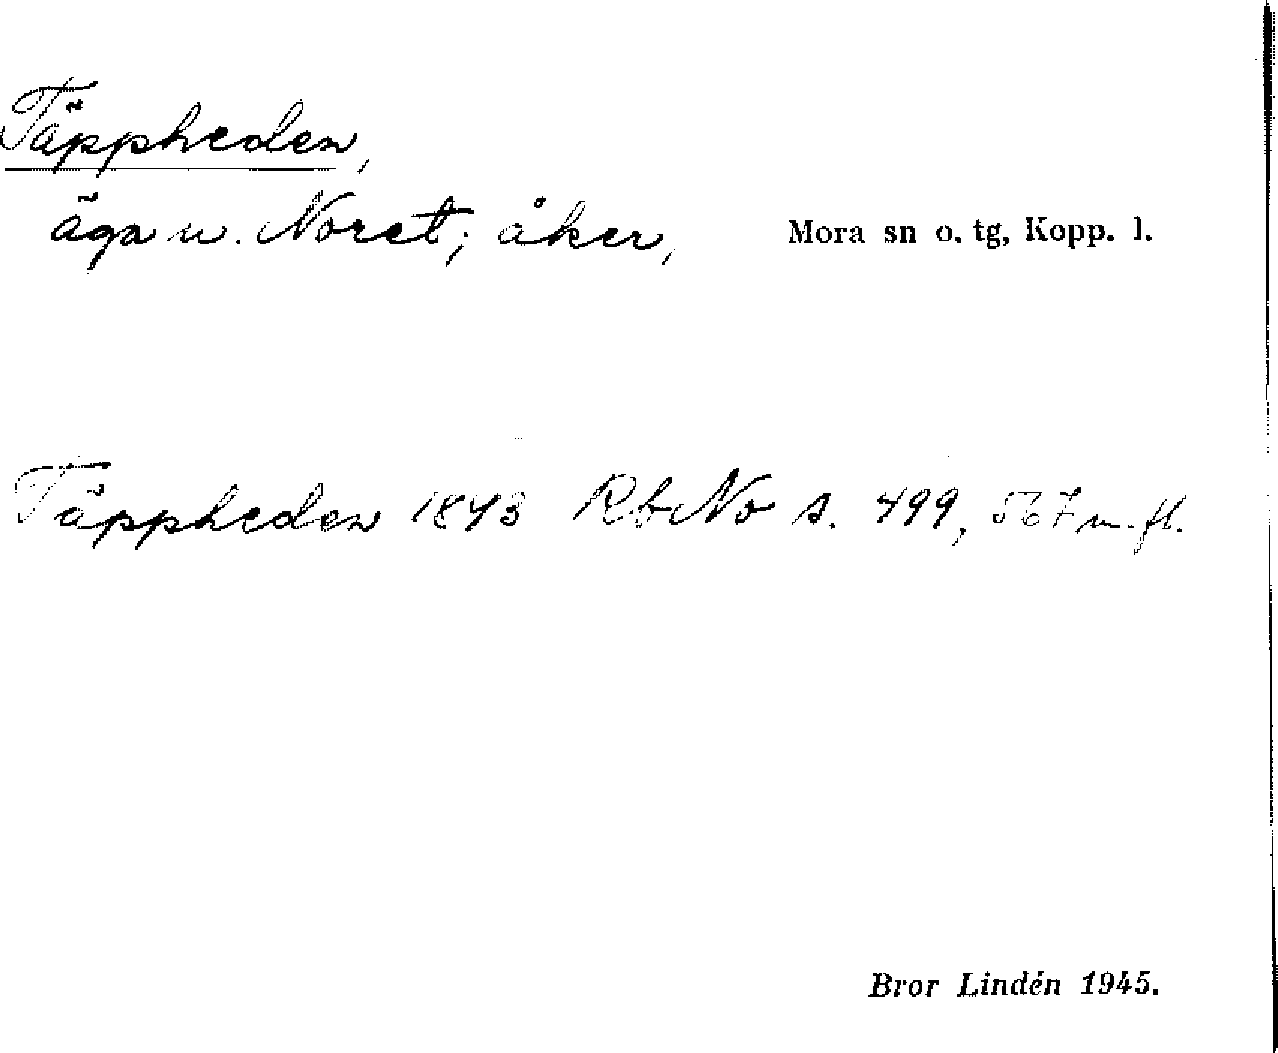 Täppheden,
äga u. Noret; åker, Mora sn o. tg, Kopp. l.
Täppheden 1843 RbNo s. 499, 567 m. fl.
Bror Lindén 1945.